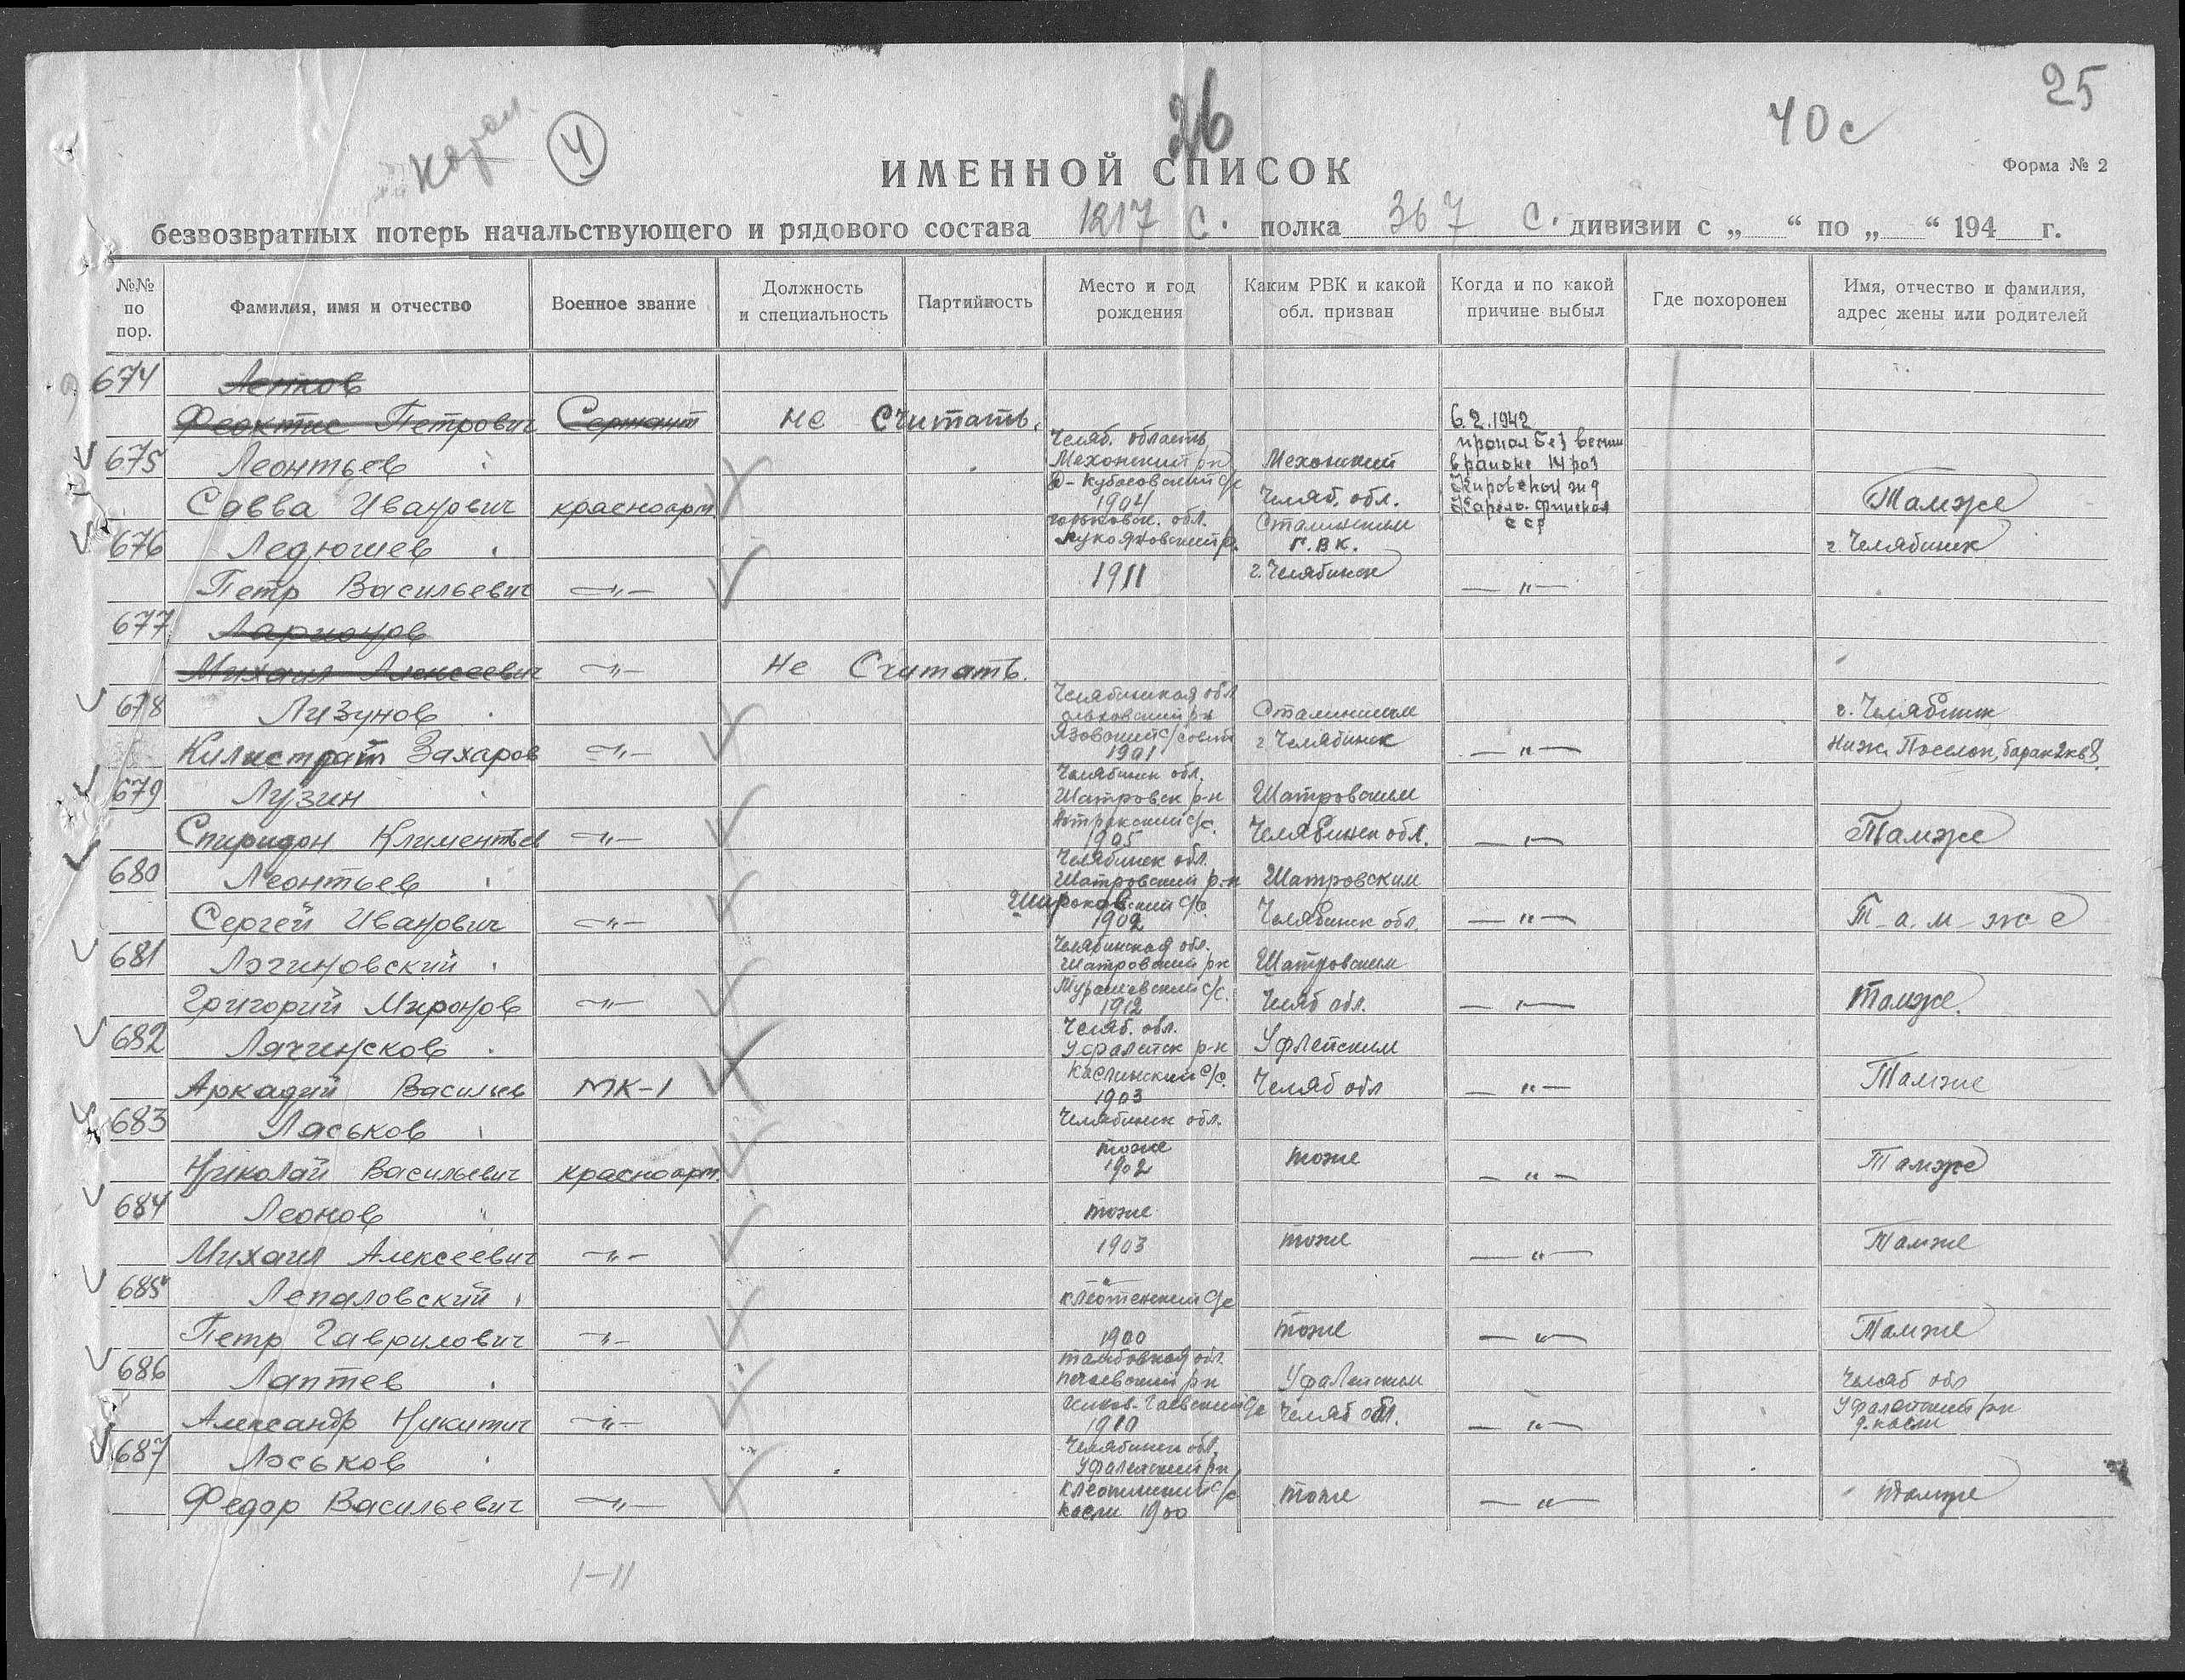 25
26
40с
4
ИМЕННОЙ СПИСОК
Форма № 2
безвозвратных потерь начальствующего и рядового состава 1217 с. полка 367 с. дивизии с „ “ по „ “ 194 г.
№№ по пор.
Фамилия, имя и отчество
Военное звание
Должность и специальность
Партийность
Место и год рождения
Каким РВК и какой обл. призван
Когда и по какой причине выбыл
Где похоронен
Имя, отчество и фамилия, адрес жены или родителей
674 Летков
Феоктис Петрович Сержант Не Считать.
675 Леонтьев
Савва Иванович красноарм
Челяб. область
Мехонский рн
1904
Мехонский
Челяб. обл.
6.2.1942
пропал без вести
в районе 14 раз
Кировской жд
Карело-Финской
ССР
Тамже
676 Ледюшев
Петр Васильевич —„—
Горьковск. обл.
Лукояновский р.
1911
Сталинским
Г.В К.
г. Челябинск
— „ —
г. Челябинск
677 Ларионов
Михаил Алексеевич —„— Не Считать.
678 Лизунов
Килистрат Захаров —„—
Челябинская обл
1901
Сталинским
г Челябинск
— „ —
г. Челябинск
679 Лузин
Спиридон Климентьев —„—
Челябинск обл.
Шатровск р-н
1905
Шатровским
Челябинск обл.
— „ —
Тамже
680 Леонтьев
Сергей Иванович —„—
Челябинск обл.
Шатровский р-н
Широковский с/с
1902
Шатровским
Челябинск обл.
— „ —
Т-а-м-же
681 Логиновский
Григорий Миронов —„—
Челябинская обл.
Шатровский рн
1912
Шатровским
Челяб обл.
— „ —
Тамже.
682 Лячинсков
Аркадий Васильев МК-1
Челяб. обл.
Уфалейск р-н
Каслинский с/с.
1903
Уфлейским
Челяб обл
— „ —
Тамже
683 Ласьков
Николай Васильевич красноарм.
Челябинск обл.
тоже
1902
тоже
— „ —
Тамже
684 Леонов
Михаил Алексеевич —„—
тоже
1903
тоже
— „ —
Тамже
685 Лепаловский
Петр Гаврилович —„—
1900
тоже
— „ —
Тамже
686 Лаптев
Александр Никитич —„—
Тамбовская обл.
1910
Уфалейским
Челяб обл.
— „ —
Челяб обл
Уфалейский рн
687 Лоськов
Федор Васильевич —„—
Челябинск обл.
Уфалейский рн
Касли 1900
тоже
— „ —
тамже
1-11